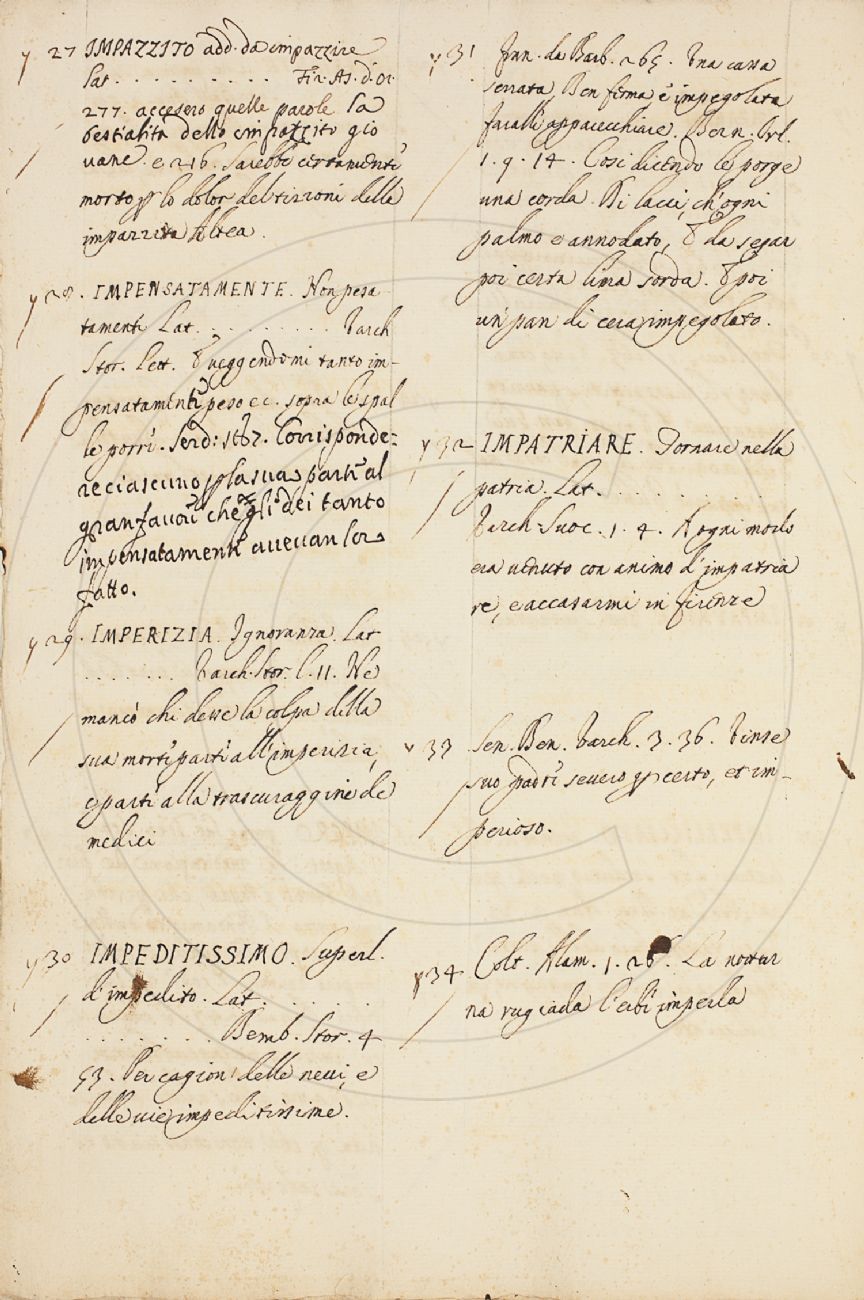 y 27 IMPAZZITO add. da impazzire
Lat. . . . . . . . . . . Fir. As. d'or.
277. accesero quelle parole la
bestialita dello impazzito gio
vane. e 216. Sarebbe certamente
morto p lo dolor del tizzoni della
impazzita Altea.
y 28. IMPENSATAMENTE. Non pesa
tamente Lat. . . . . . . . . . Varch
Stor. Lett. E veggendomi tanto im-
pensatamente peso ec. sopra le spal
le porri. Serd: 1567. Corrisponde:
re ciascuno p la sua parte al
gran favore che gli dei tanto
impensatamente avevan lor
fatto.
y 29. IMPERIZIA. Ignoranza. Lat
. . . . . . . Varch. Stor. l. 11. Ne
mancò chi desse la colpa della
sua morte parte all'imperizia,
e parte alla trascuraggine de
medici
y 30 IMPEDITISSIMO. Superl.
d'impedito. Lat. . . . . .
. . . . . . . . Bemb. Stor. 4
53. Per cagion delle nevi, e
delle vie impeditissime.
y 31 Fran. da Barb. 265. Una cassa
serrata, Ben ferma e impegolata
Faralli appacecchiare. Bern. Orl.
1. 9. 14. Cosi dicendo le porge
una corda Di lacci, ch'ogni
palmo e annodato, E da segar
poi certa lima sorda. E poi
un pan di cera impegolato.
y 32 IMPATRIARE. Tornare nella
patria. Lat. . . . . . . . . .
Varch. Suoc. 1. 4. A ogni modo
era venuto con animo d'impatria
re, e accasarmi in Firenze
y 33 Sen. Ben. Varch. 3. 36. Vinse
suo padre severo p certo, et im-
perioso.
y 34 Colt. Alam. 1. 26. La nottur
na rugiada l'erbe imperla